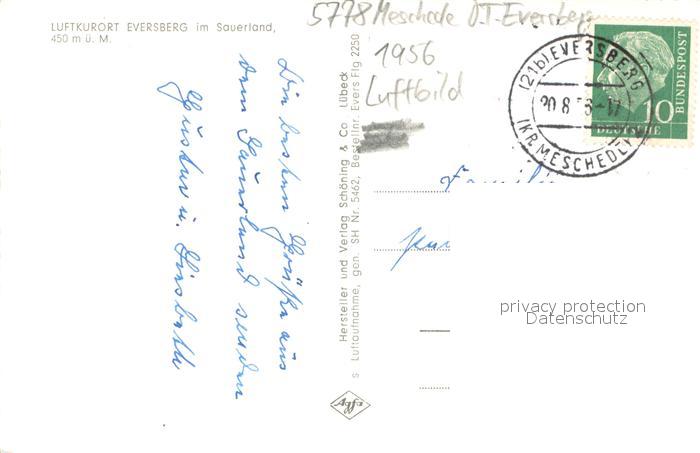 LUFTKURORT EVERSBERG im Sauerland,
450 m ü. M.
5778 Meschede O.T. Eversberg
1956
Luftbild
(21b) EVERSBERG
20.8.56-17
(KR. MESCHEDE)
10
DEUTSCHE
BUNDESPOST
Die besten Grüße aus
dem Sauerland senden
Gustav u. Liesbeth
Hersteller und Verlag Schöning & Co Lübeck
S Luftaufnahme, gen. SH Nr. 5462, Bestellnr. Evers Flg 2250
Familie
Agfa
privacy protection
Datenschutz